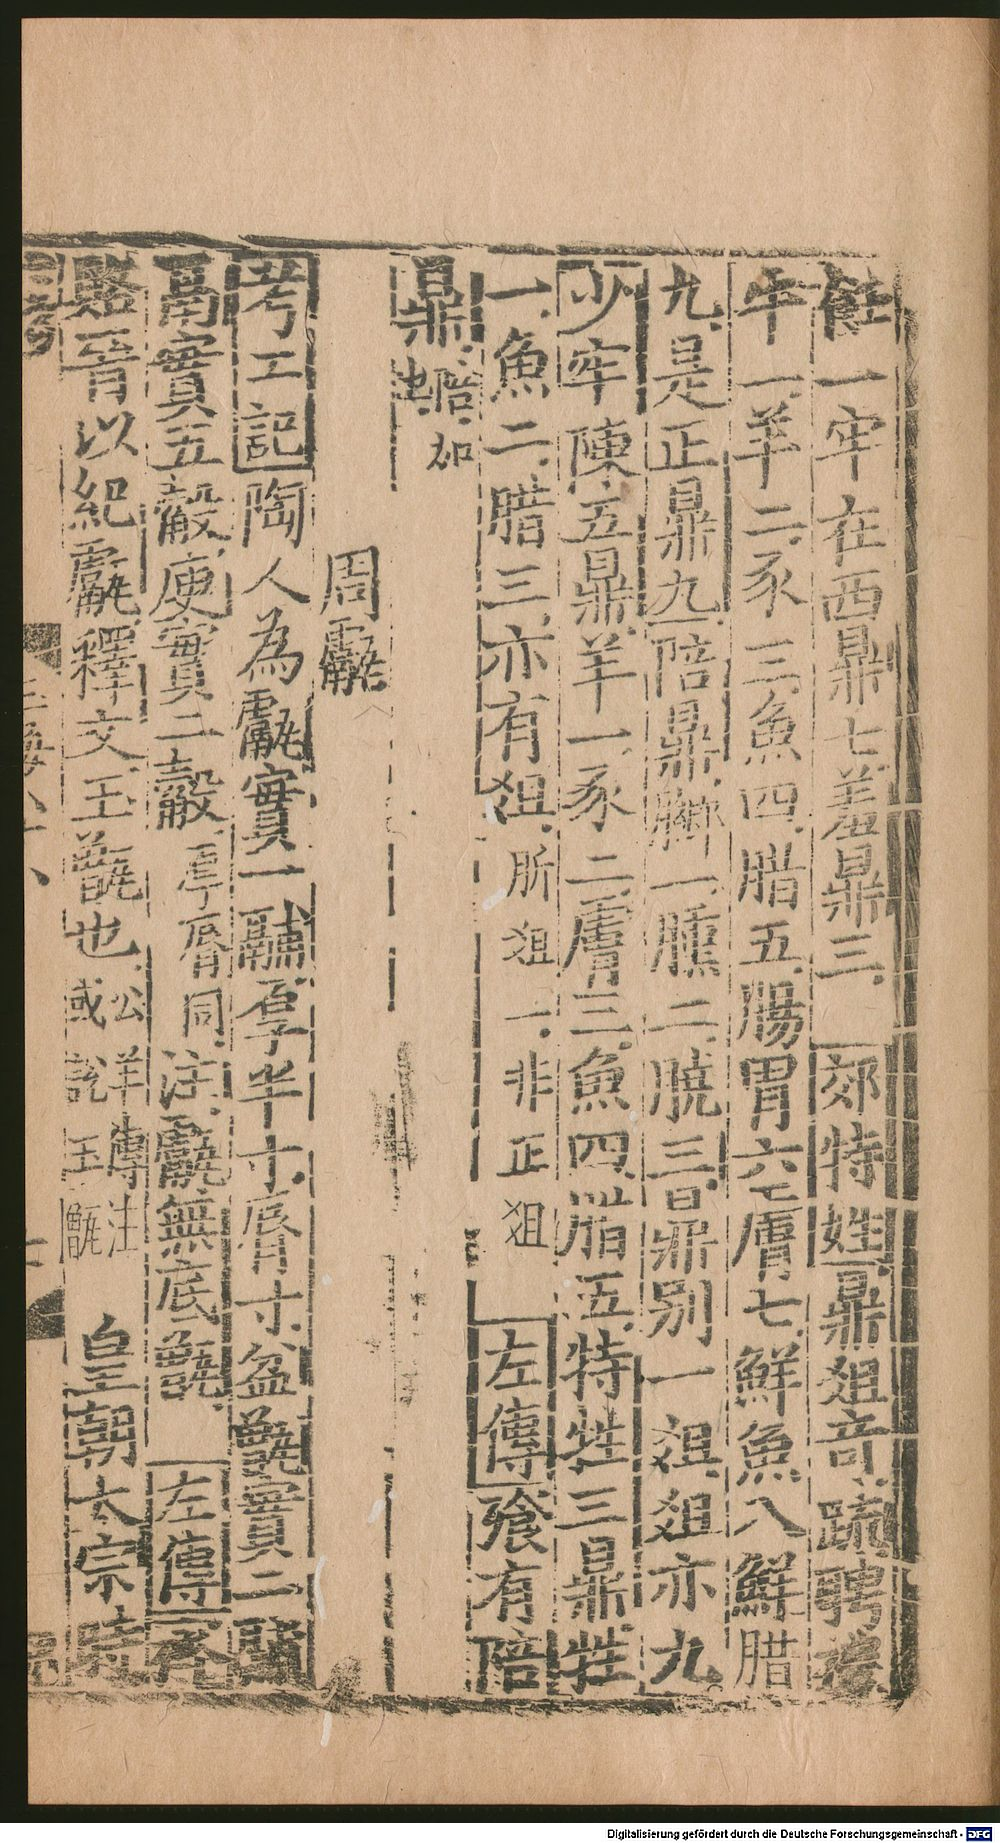 飪一牢在西鼎七羞鼎三郊特牲鼎俎奇疏聘禮
牛一羊二豕三魚四腊五腸胃六膚七鮮魚八鮮腊
九是正鼎九陪鼎膷一臐二膮三皆鼎別一俎俎亦九
少牢陳五鼎羊一豕二膚三魚四腊五特牲三鼎牲
一魚二腊三亦有俎肵俎一非正俎左傳飧有陪
鼎陪加
也
周甗
考工記陶人為甗實一鬴厚半寸脣寸盆甑實二鬴
鬲實五觳庾實二觳厚脣同注甗無底甑左傳齊
賂晉以紀甗釋文玉甑也公羊傳注
或說玉甑皇朝太宗時
Digitalisierung gefördert durch die Deutsche Forschungsgemeinschaft - DFG